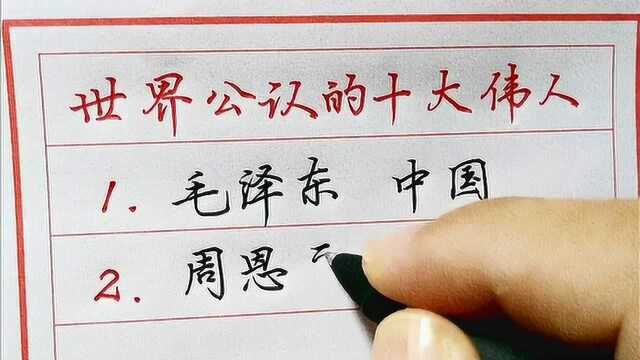 世界公认的十大伟人
1. 毛泽东 中国
2. 周恩